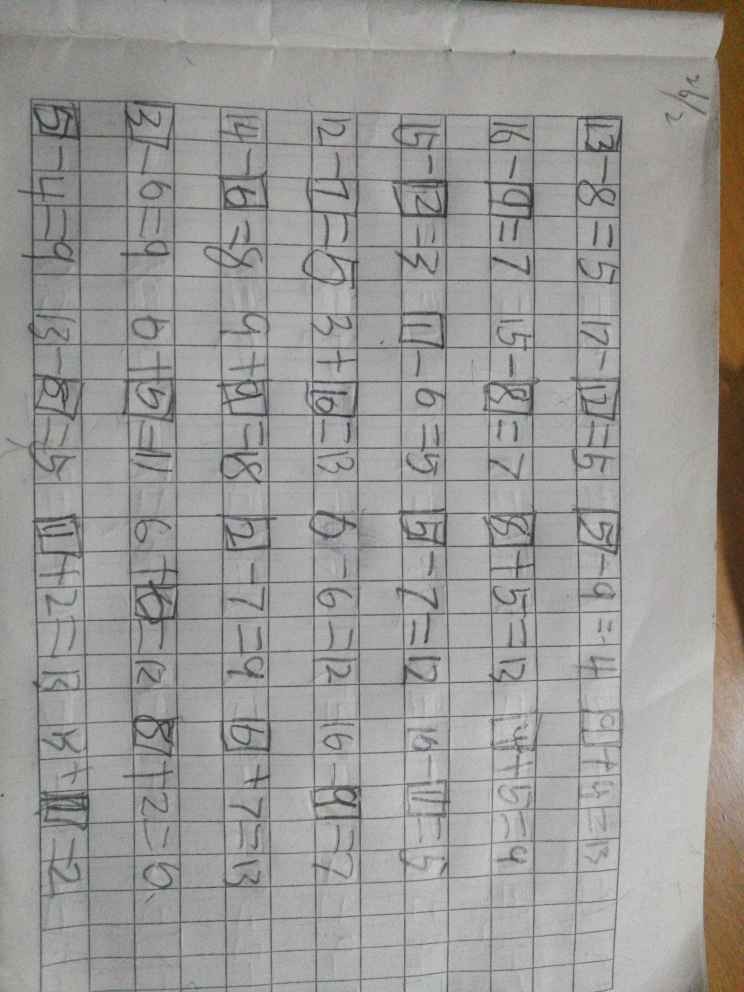 26/2
13-8=5 17-12=5 5-9=4 9+4=13
16-9=7 15-8=7 8+5=13 4+5=9
15-12=3 11-6=5 5-7=12 16-11=5
12-7=5 3+16=13 6-6=12 16-9=7
14-6=8 9+9=18 2-7=9 6+7=13
3-6=9 6+5=11 6+6=12 8+2=6
5-4=9 13-8=5 11+2=13 =2